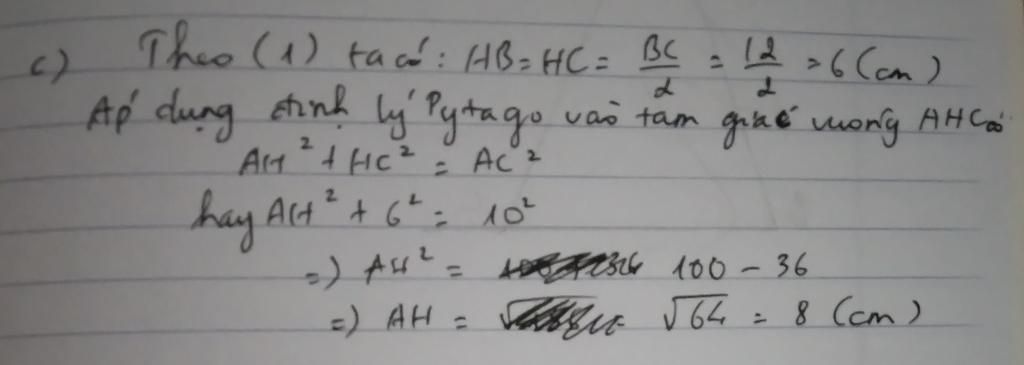 c) Theo (1) ta có: HB = HC = BC/2 = 12/2 = 6 (cm)
Áp dụng định lý Pytago vào tam giác vuông AHC có
AH² + HC² = AC²
hay AH² + 6² = 10²
=) AH² = 100 - 36
=) AH = √64 = 8 (cm)